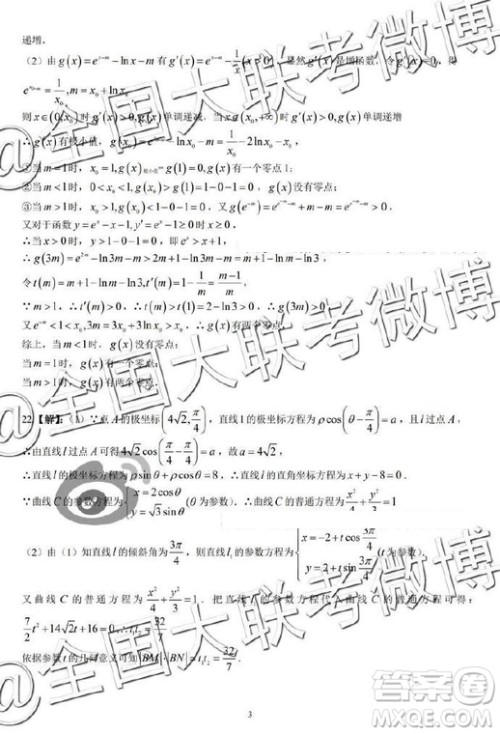 递增。
（2）由 g(x)=e^{x-m}-ln x-m 有 g'(x)=e^{x-m}-1/x (x>0)，显然 g'(x) 是增函数，令
e^{x₀-m}=1/x₀, m=x₀+ln x₀
则 x∈(0,x₀] 时 g'(x) g(x) 单调递减，当 x∈ 时 g'(x)>0, g(x) 单调递增
∴g(x) 有极小值，g(x₀)= -ln x₀-m=1/x₀-2ln x₀-x₀,
①当 m=1 时，x₀=1, g(x) =g(1)=0, g(x) 有一个零点 1；
②当 m<1 时，0<x₀<1, g(x₀)>g(1)=0, g(x) 没有零点；
③当 m>1 时，x₀>1, g(x₀)<g(1)=0，又
又对于函数 y=e^x-x-1, y'=e^x-1>0 时 x>0,
∴当 x>0 时，y>1-0-1=0，即 e^x>x+1,
∴g(3m)=e^{2m}-ln 3m-m>2m+1-ln 3m-m=m+1-ln m-ln 3,
令 t(m)=m+1-ln m-ln 3，则 t'(m)=1-1/m=(m-1)/m,
∵m>1, ∴t'(m)>0, ∴t(m)>t(1)=2-ln 3>0, ∴g(3m)>0,
又 e^{-m}<1<x₀, 3m>3x₀>x₀,
综上，当 m=1 时，g(x) 有一个零点；
当 m<1 时，g(x) 没有零点；
当 m>1 时，g(x) 有两个零点.
22【解】：（1）∵点 A 的极坐标 (4√2, π/4)，直线 l 的极坐标方程为 ρcos(θ-π/4)=a，且 l 过点 A,
∴由直线 l 过点 A 可得 4√2cos(π/4-π/4)=a，故 a=4√2,
∴直线 l 的极坐标方程为 ρsinθ+ρcosθ=8，∴直线 l 的直角坐标方程为 x+y-8=0.
∵曲线 C 的参数方程为 {x=2cosθ, y=√3sinθ (θ为参数)，∴曲线 C 的普通方程为 x²/4+y²/3=1
（2）由（1）知直线 l 的倾斜角为 3π/4，则直线 l₁ 的参数方程为 {x=-2+tcos3π/4, y=2+tsin3π/4 (t为参数)，
又曲线 C 的普通方程为 x²/4+y²/3=1. 把直线 l₁ 的参数方程代入曲线 C 的普通方程可得：
7/2t²+14√2t+16=0, ∴t₁t₂=32/7
依据参数 t 的几何意义可知 |BM|·|BN|=t₁t₂=32/7
3
@全国大联考微博
@全国大联考微博
@全国大联考微博
答案圈
MXQE.COM